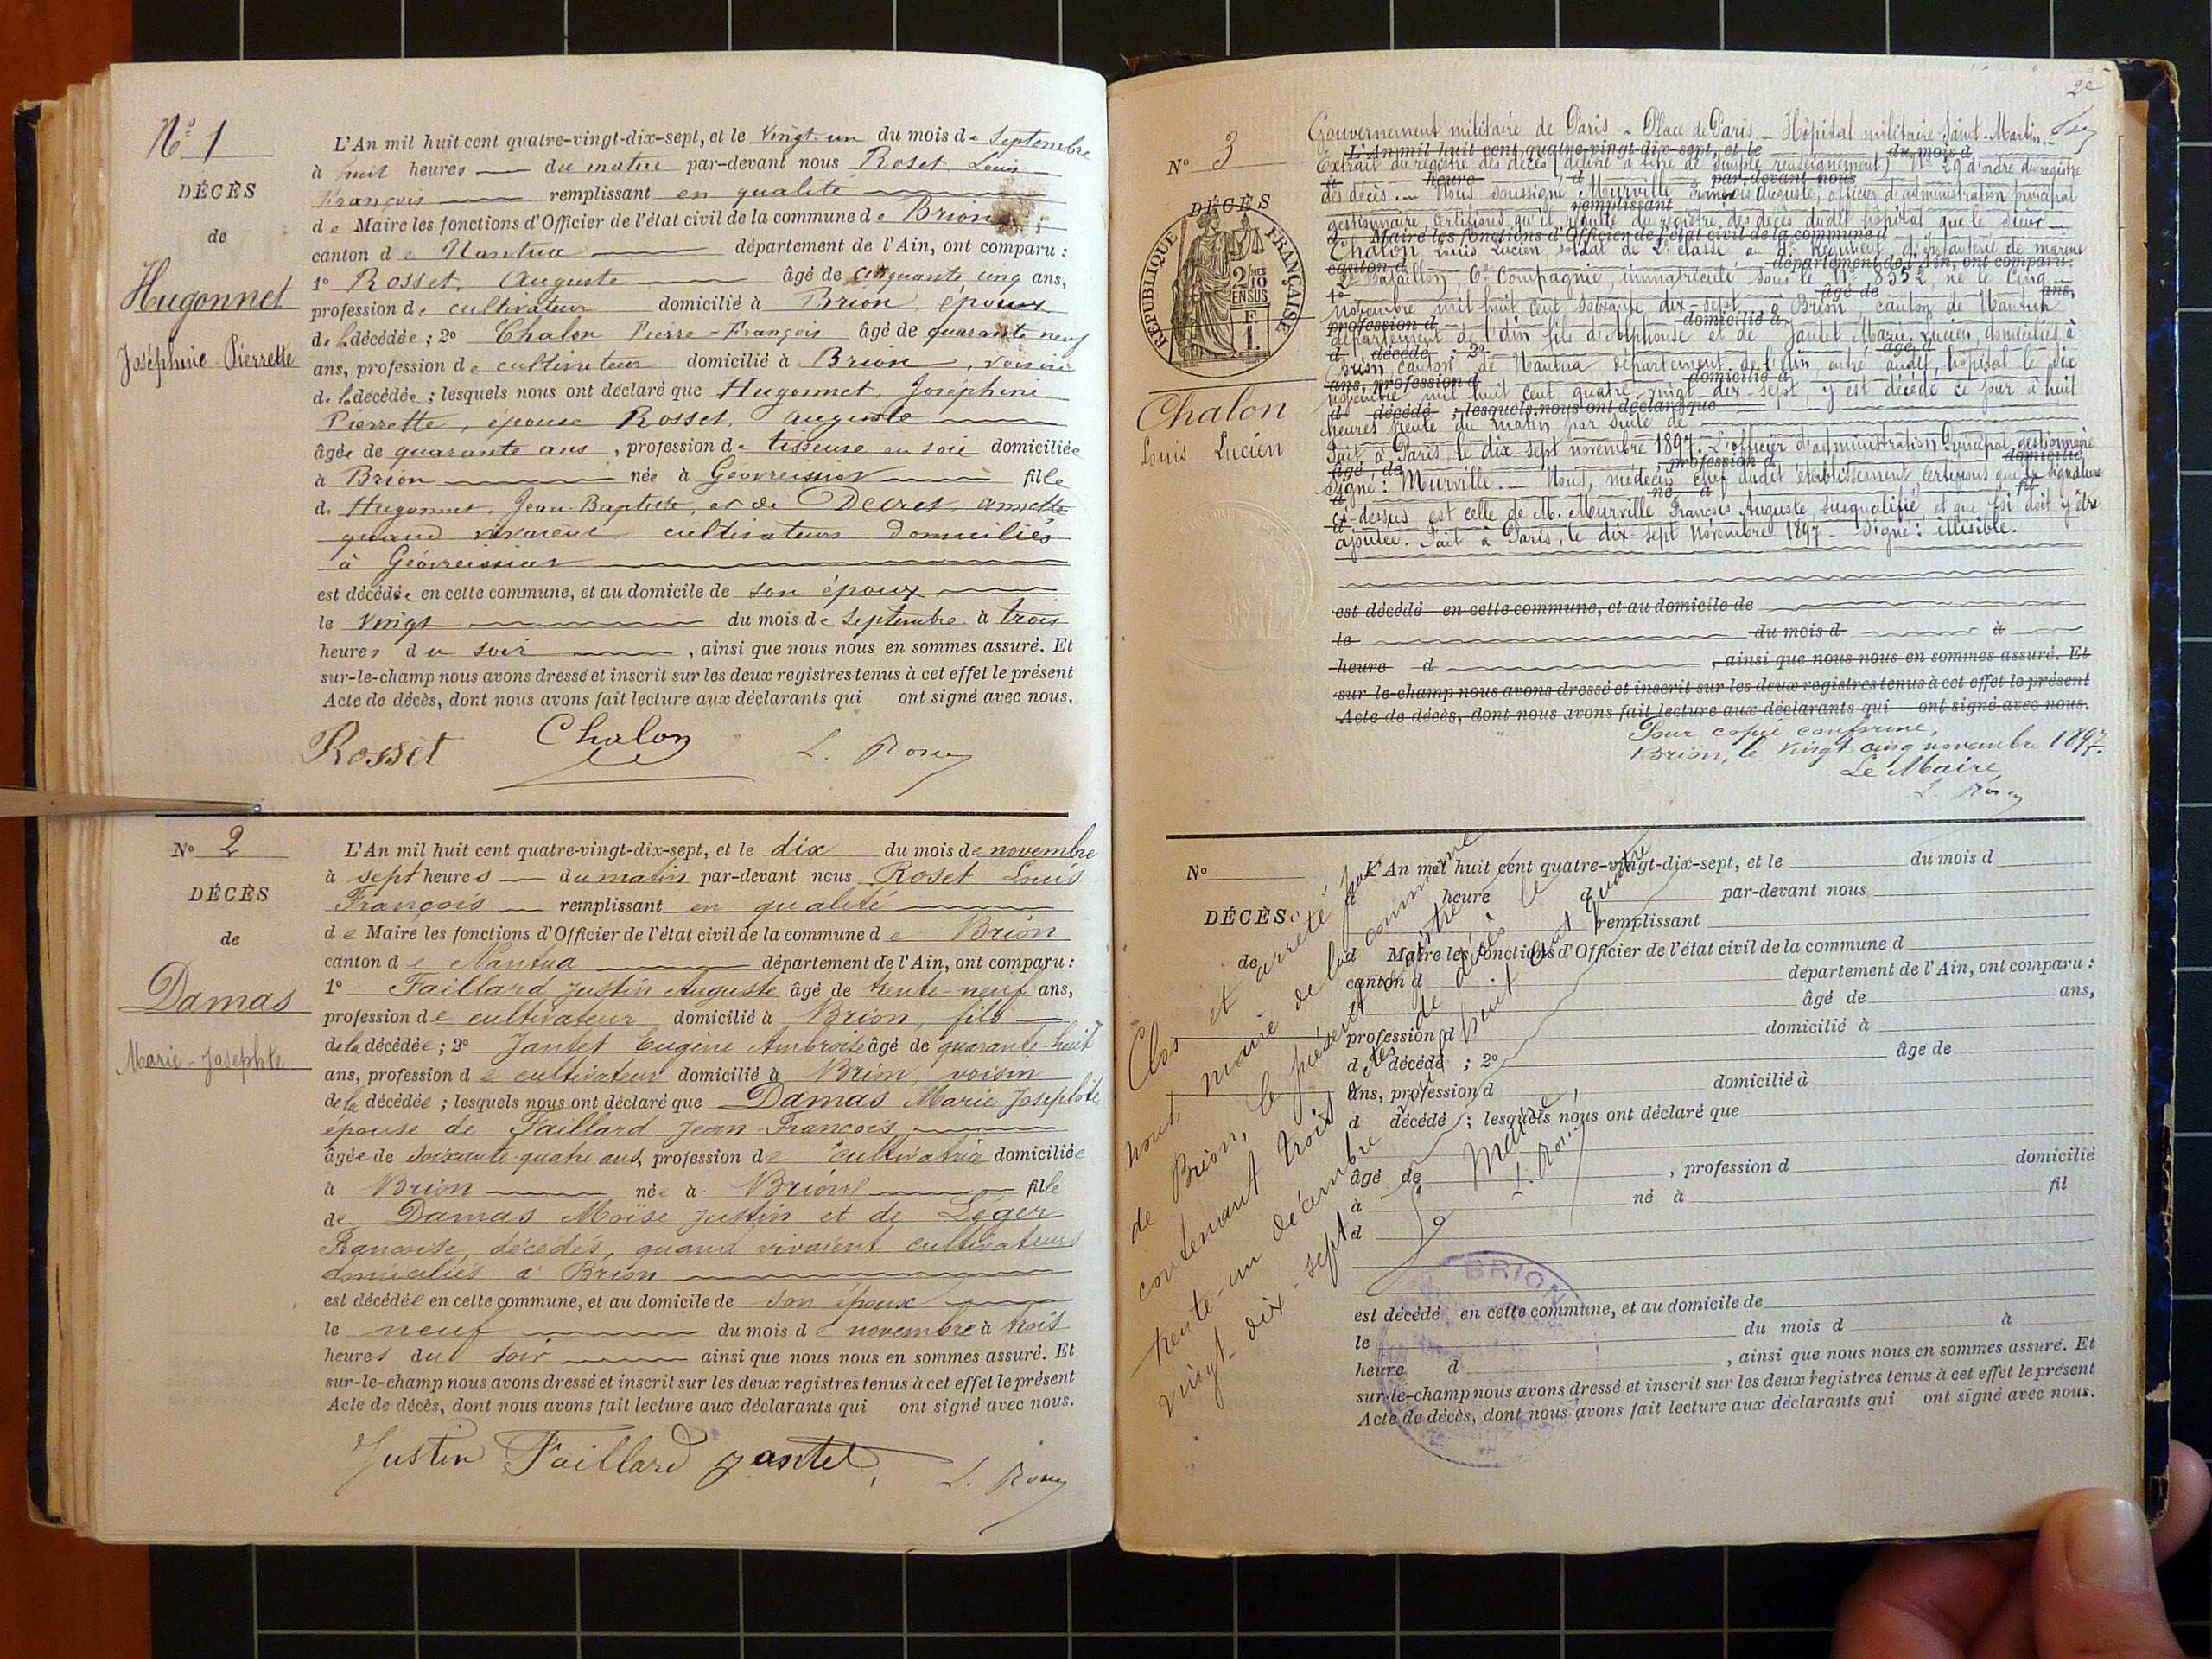 N° 1
DÉCÈS
de
Hugonnet
Joséphine-Pierrette
L'An mil huit cent quatre-vingt-dix-sept, et le Vingt-un du mois de Septembre
à huit heures du matin par-devant nous Roset Louis
François remplissant en qualité
de Maire les fonctions d'Officier de l'état civil de la commune de Brion
canton de Nantua département de l'Ain, ont comparu :
1° Rosset, Auguste âgé de cinquante cinq ans,
profession de cultivateur domicilié à Brion, époux
de la décédée ; 2° Chalon Pierre-François âgé de quarante neuf
ans, profession de cultivateur domicilié à Brion, voisin
de la décédée ; lesquels nous ont déclaré que Hugonnet, Joséphine
Pierrette, épouse Rosset, Auguste
âgée de quarante ans, profession de tisseuse en soie domiciliée
à Brion née à Géovreissiat fille
de Hugonnet, Jean-Baptiste, et de Decret, annette
quand vivaient cultivateurs domiciliés
à Géovreissiat
est décédée en cette commune, et au domicile de son époux
le vingt du mois de Septembre à trois
heures du soir, ainsi que nous nous en sommes assuré. Et
sur-le-champ nous avons dressé et inscrit sur les deux registres tenus à cet effet le présent
Acte de décès, dont nous avons fait lecture aux déclarants qui ont signé avec nous.
Rosset Chalon L. Roset
N° 2
DÉCÈS
de
Damas
Marie-Josephte
L'An mil huit cent quatre-vingt-dix-sept, et le dix du mois de novembre
à sept heures du matin par-devant nous Roset Louis
François remplissant en qualité
de Maire les fonctions d'Officier de l'état civil de la commune de Brion
canton de Nantua département de l'Ain, ont comparu :
1° Faillard Justin Auguste âgé de trente-neuf ans,
profession de cultivateur domicilié à Brion, fils
de la décédée ; 2° Jantet Eugène Ambroise âgé de quarante-huit
ans, profession de cultivateur domicilié à Brion, voisin
de la décédée ; lesquels nous ont déclaré que Damas Marie Josephte
épouse de Faillard Jean-François
âgée de soixante-quatre ans, profession de cultivatrice domiciliée
à Brion née à Brion fille
de Damas Moïse Justin et de Léger
Françoise, décédés, quand vivaient cultivateurs
domiciliés à Brion
est décédée en cette commune, et au domicile de son époux
le neuf du mois de novembre à trois
heures du soir ainsi que nous nous en sommes assuré. Et
sur-le-champ nous avons dressé et inscrit sur les deux registres tenus à cet effet le présent
Acte de décès, dont nous avons fait lecture aux déclarants qui ont signé avec nous.
Justin Faillard Jantet, L. Roset
N° 3
DÉCÈS
RÉPUBLIQUE FRANÇAISE
2/10 EN SUS
Chalon
Louis Lucien
Gouvernement militaire de Paris - Place de Paris - Hôpital militaire Saint-Martin
L'An mil huit cent quatre-vingt-dix-sept, et le du mois d
Extrait du registre des décès (délivré à titre de simple renseignement) N° 29 d'ordre du registre
heure d par-devant nous
des décès. - Nous soussigné Murville François Auguste, officier d'administration principal
remplissant
gestionnaire, certifions qu'il résulte du registre des décès dudit hôpital que le sieur
d Maire les fonctions d'Officier de l'état civil de la commune d
Chalon Louis Lucien, soldat de 2e classe au 4e Régiment d'infanterie de marine
canton d département de l'Ain, ont comparu :
2e Bataillon, 6e Compagnie, immatriculé sous le N° 8352, né le cinq
1° âgé de ans,
novembre mil huit cent soixante dix-sept à Brion, canton de Nantua
profession d domicilié à
département de l'Ain fils d'Alphonse et de Jantet Marie Lucien, domiciliés à
d décédé ; 2° âgé d
Brion canton de Nantua département de l'Ain entré audit hôpital le dix
ans, profession d domicilié à
novembre mil huit cent quatre vingt dix-sept, y est décédé ce jour à huit
d décédé ; lesquels nous ont déclaré que
heures trente du matin par suite de
Fait à Paris, le dix sept novembre 1897. L'officier d'administration Principal gestionnaire
âgé de, profession d domicilié
Signé : Murville. - Nous, médecin chef dudit établissement certifions que la signature
à né à fil
ci-dessus est celle de M. Murville François Auguste, susqualifié, et que foi doit y être
ajoutée. Fait à Paris, le dix-sept Novembre 1897 - Signé : illisible.
est décédé en cette commune, et au domicile de
le du mois d à
heure d, ainsi que nous nous en sommes assuré. Et
sur-le-champ nous avons dressé et inscrit sur les deux registres tenus à cet effet le présent
Acte de décès, dont nous avons fait lecture aux déclarants qui ont signé avec nous.
Pour copie conforme,
Brion, le vingt cinq novembre 1897.
Le Maire,
L. Roset
N°
DÉCÈS
de
L'An mil huit cent quatre-vingt-dix-sept, et le du mois d
à heure d par-devant nous
remplissant
d Maire les fonctions d'Officier de l'état civil de la commune d
canton d département de l'Ain, ont comparu :
âgé de ans,
profession d domicilié à
d décédé ; 2° âge de
ans, profession d domicilié à
d décédé ; lesquels nous ont déclaré que
âgé de, profession d domicilié
à né à fil
d
est décédé en cette commune, et au domicile de
le du mois d à
heure d, ainsi que nous nous en sommes assuré. Et
sur-le-champ nous avons dressé et inscrit sur les deux registres tenus à cet effet le présent
Acte de décès, dont nous avons fait lecture aux déclarants qui ont signé avec nous.
Clos et arrêté par
nous, maire de la commune
de Brion, le présent registre
contenant trois actes de décès le
trente-un décembre mil huit cent quatre
vingt-dix-sept
Le Maire,
L. Roset
BRION